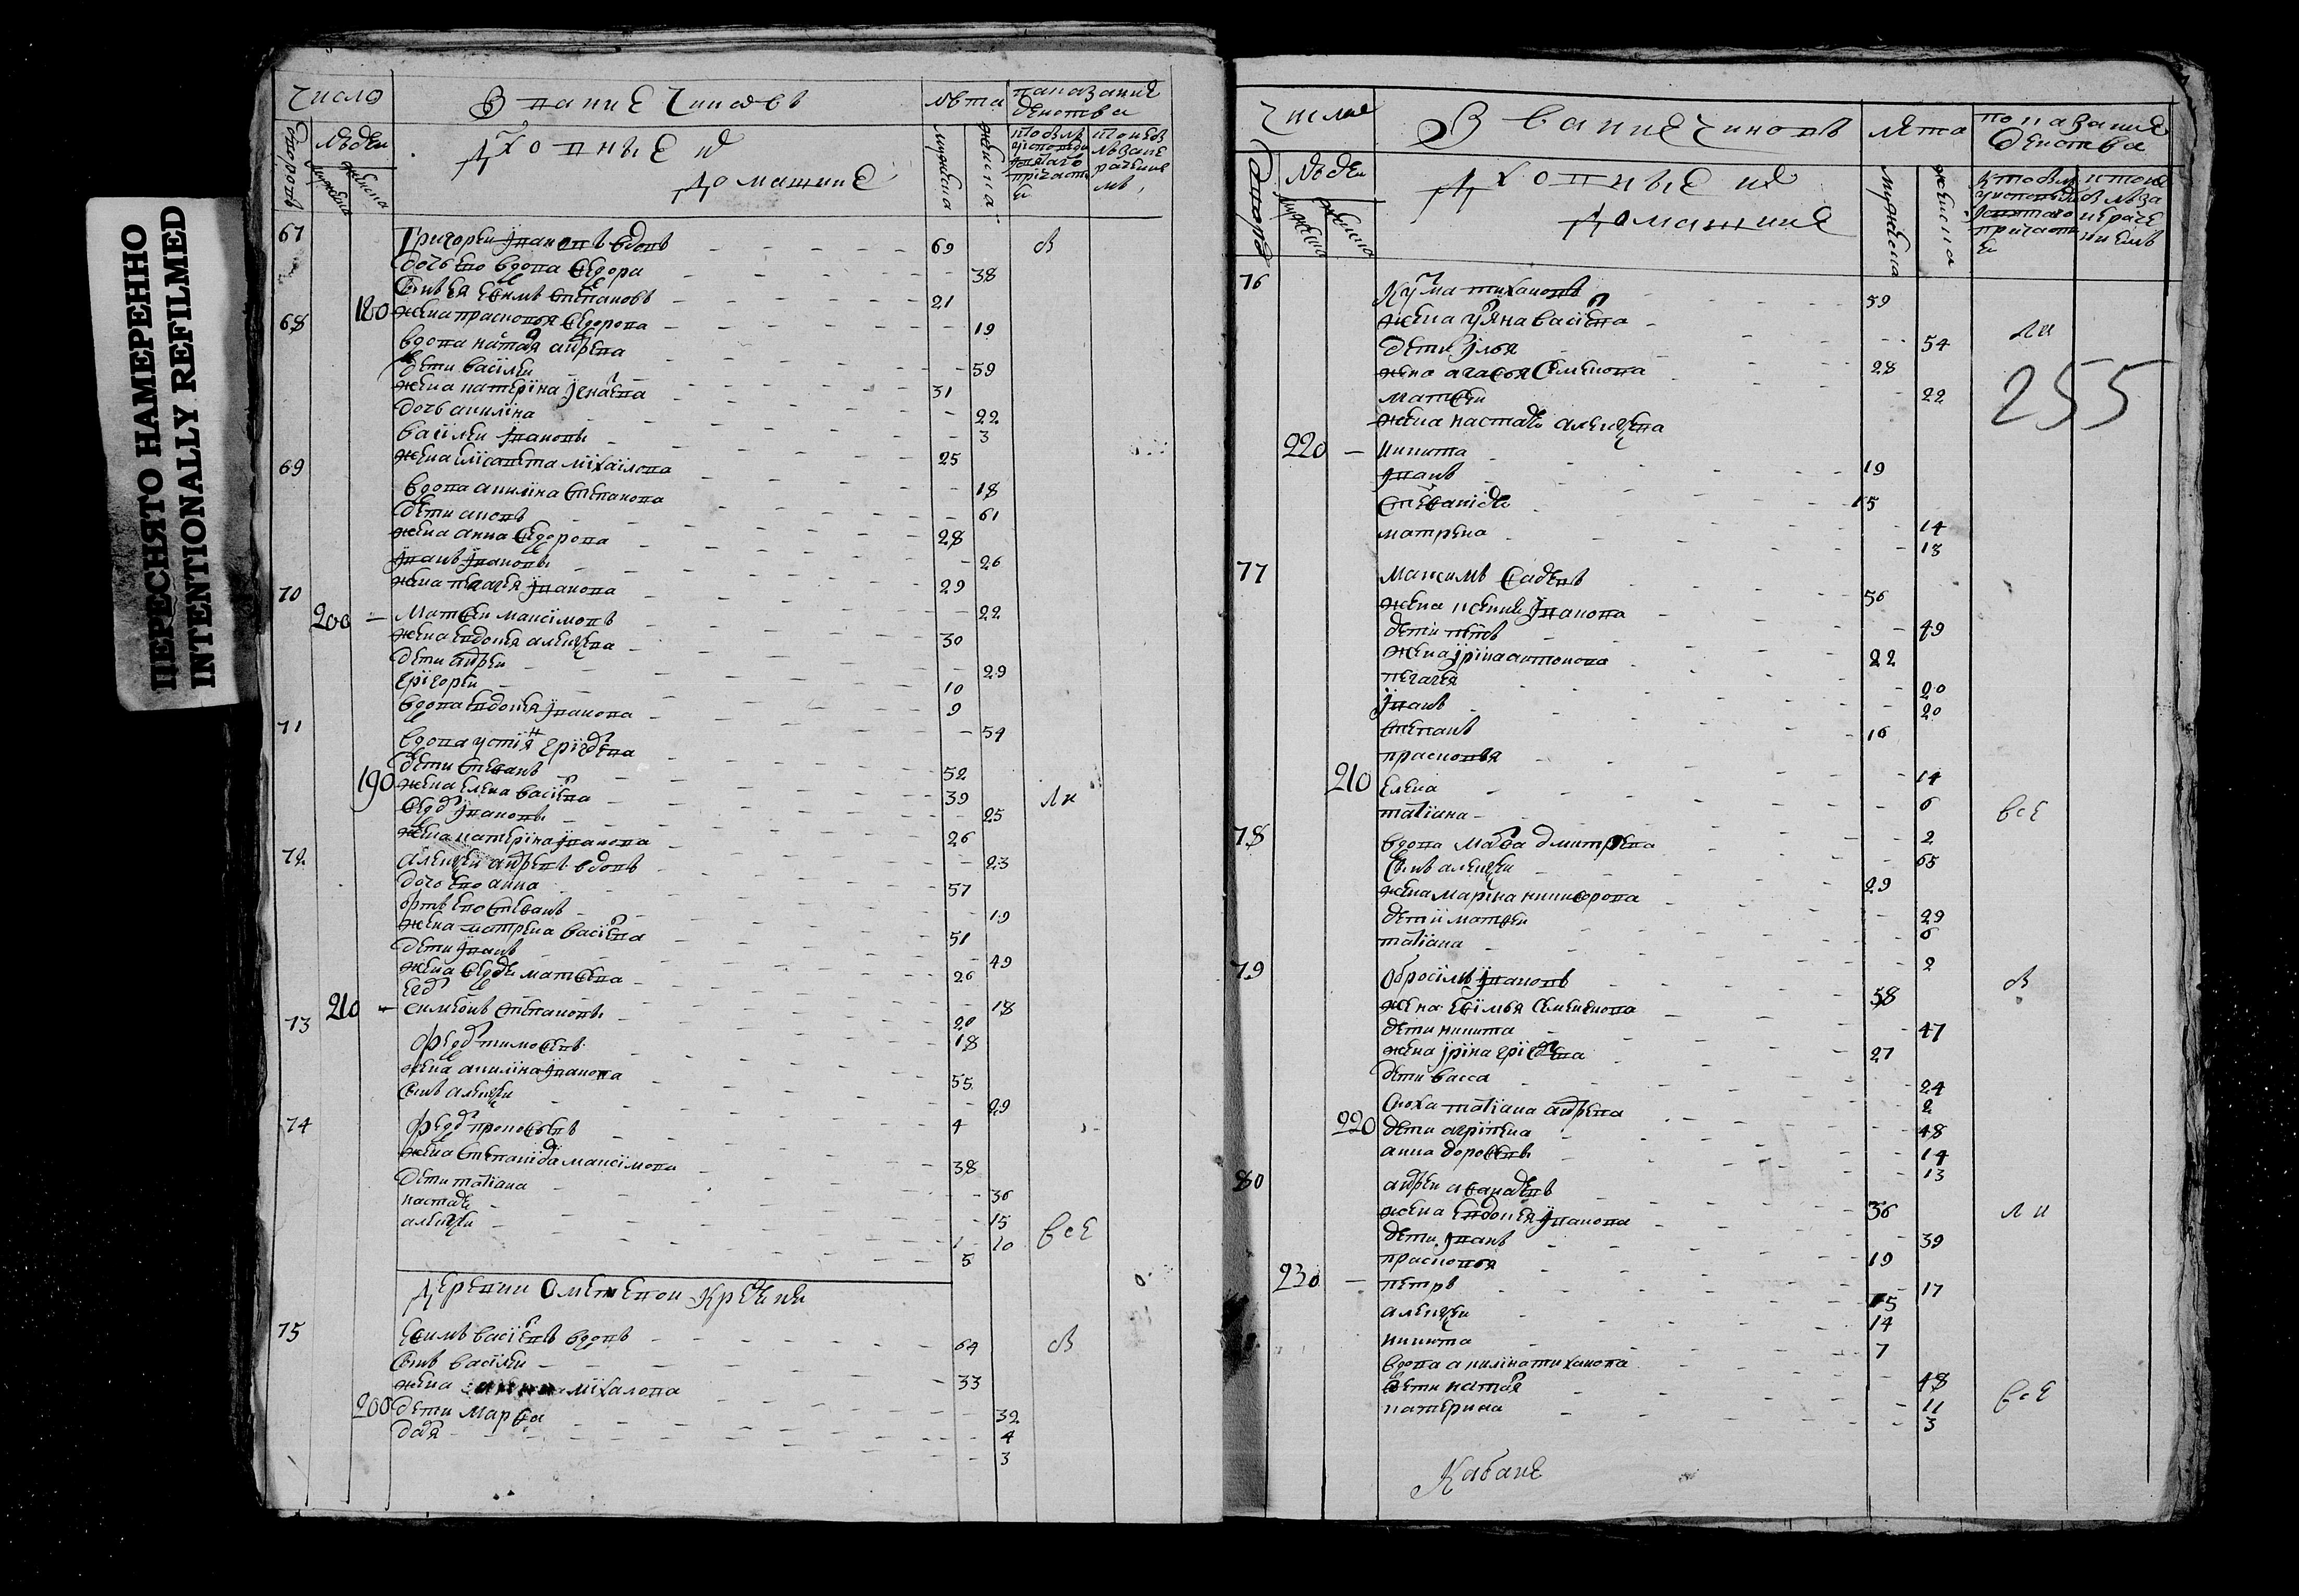 ПЕРЕСНЯТО НАМЕРЕННО
INTENTIONALLY REFILMED
Число
Звание Чиновъ
лѣта
показание
действа
дворовъ
людеи
мужеска
женска
Духовные и
Домашние
мужеска
женска
67
Григореи Ивановъ вдовъ 69
дочь ево вдова Федора 38
сынъ ея Ефимъ Степановъ 21
180 жена Прасковья Федорова 19
68
вдова Наталя Андреева 59
дети Василеи 31
жена Катерина Игнатева 22
дочь Акилина 3
Василеи Ивановъ 25
жена Елисавета Михаилова 18
69
вдова Акилина Степанова 61
дети Аковъ 28
жена Анна Федорова 26
Иванъ Ивановъ 29
жена Пелагея Иванова 22
70
200 Матфеи Максимовъ 30
жена Евдокея Алексеева 29
дети Андреи 10
Григореи 9
вдова Евдокея Иванова 54
71
вдова Устиня Григорева 52
дети Стефанъ 39
190 жена Елена Василева 25
Федоръ Ивановъ 26
жена Катерина Иванова 23
72
Алексеи Андреевъ вдовъ 57
дочь ево Анна 19
братъ ево Стефанъ 51
жена Матрена Василева 49
дети Иванъ 26
жена Федося Матфеева 18
Егоръ 20
210 Симеонъ Степановъ 18
73
Федоръ Тимофеевъ 55
жена Акилина Иванова 29
сынъ Алексеи 4
74
Федоръ Прокофьевъ 38
жена Степанида Максимова 36
дети Татиана 15
Настася 10
Алексеи 5
все
Деревни Ометевои Крещены
75
Ефимъ Василевъ вдовъ 64
сынъ Василеи 33
жена Михалова 32
200 дети Марфа 4
Даря 3
Числа
Звание Чиновъ
лета
показание
действа
людеи
мужеска
женска
Духовные и
Домашние
мужеска
женска
76
Кузма Тихановъ 59
жена Уляна Василева 54
дети Илья 28
жена Агафья Семенова 22
255
Матфеи
жена Настася Алексеева
220 Никита 19
Иванъ 15
Стефанида 14
Матрена 13
77
Максимъ Фадеевъ 56
жена Ксения Иванова 49
дети Петръ 22
жена Ирина Антонова 20
Пелагея 20
Иванъ 16
Степанъ
Прасковья 14
210 Елена 6
Татиана 2
все
78
вдова Марфа Дмитреева 65
сынъ Алексеи 29
жена Марина Никифорова 29
дети Матфеи 6
Татиана 2
79
Обросимъ Ивановъ 58
жена Ефимья Семенова 47
дети Никита 27
жена Ирина Григорева 24
дети Васса 2
сноха Татиана Андреева 48
220 дети Агрипена 14
Анна Дорофеевы 13
80
Андреи Афанасевъ 36
жена Евдокея Иванова 39
дети Иванъ 19
Прасковья 17
230 Петръ 15
Алексеи 14
Никита 7
вдова Акилина Тиханова 48
дети Наталя 11
Катерина 3
все
Кабане